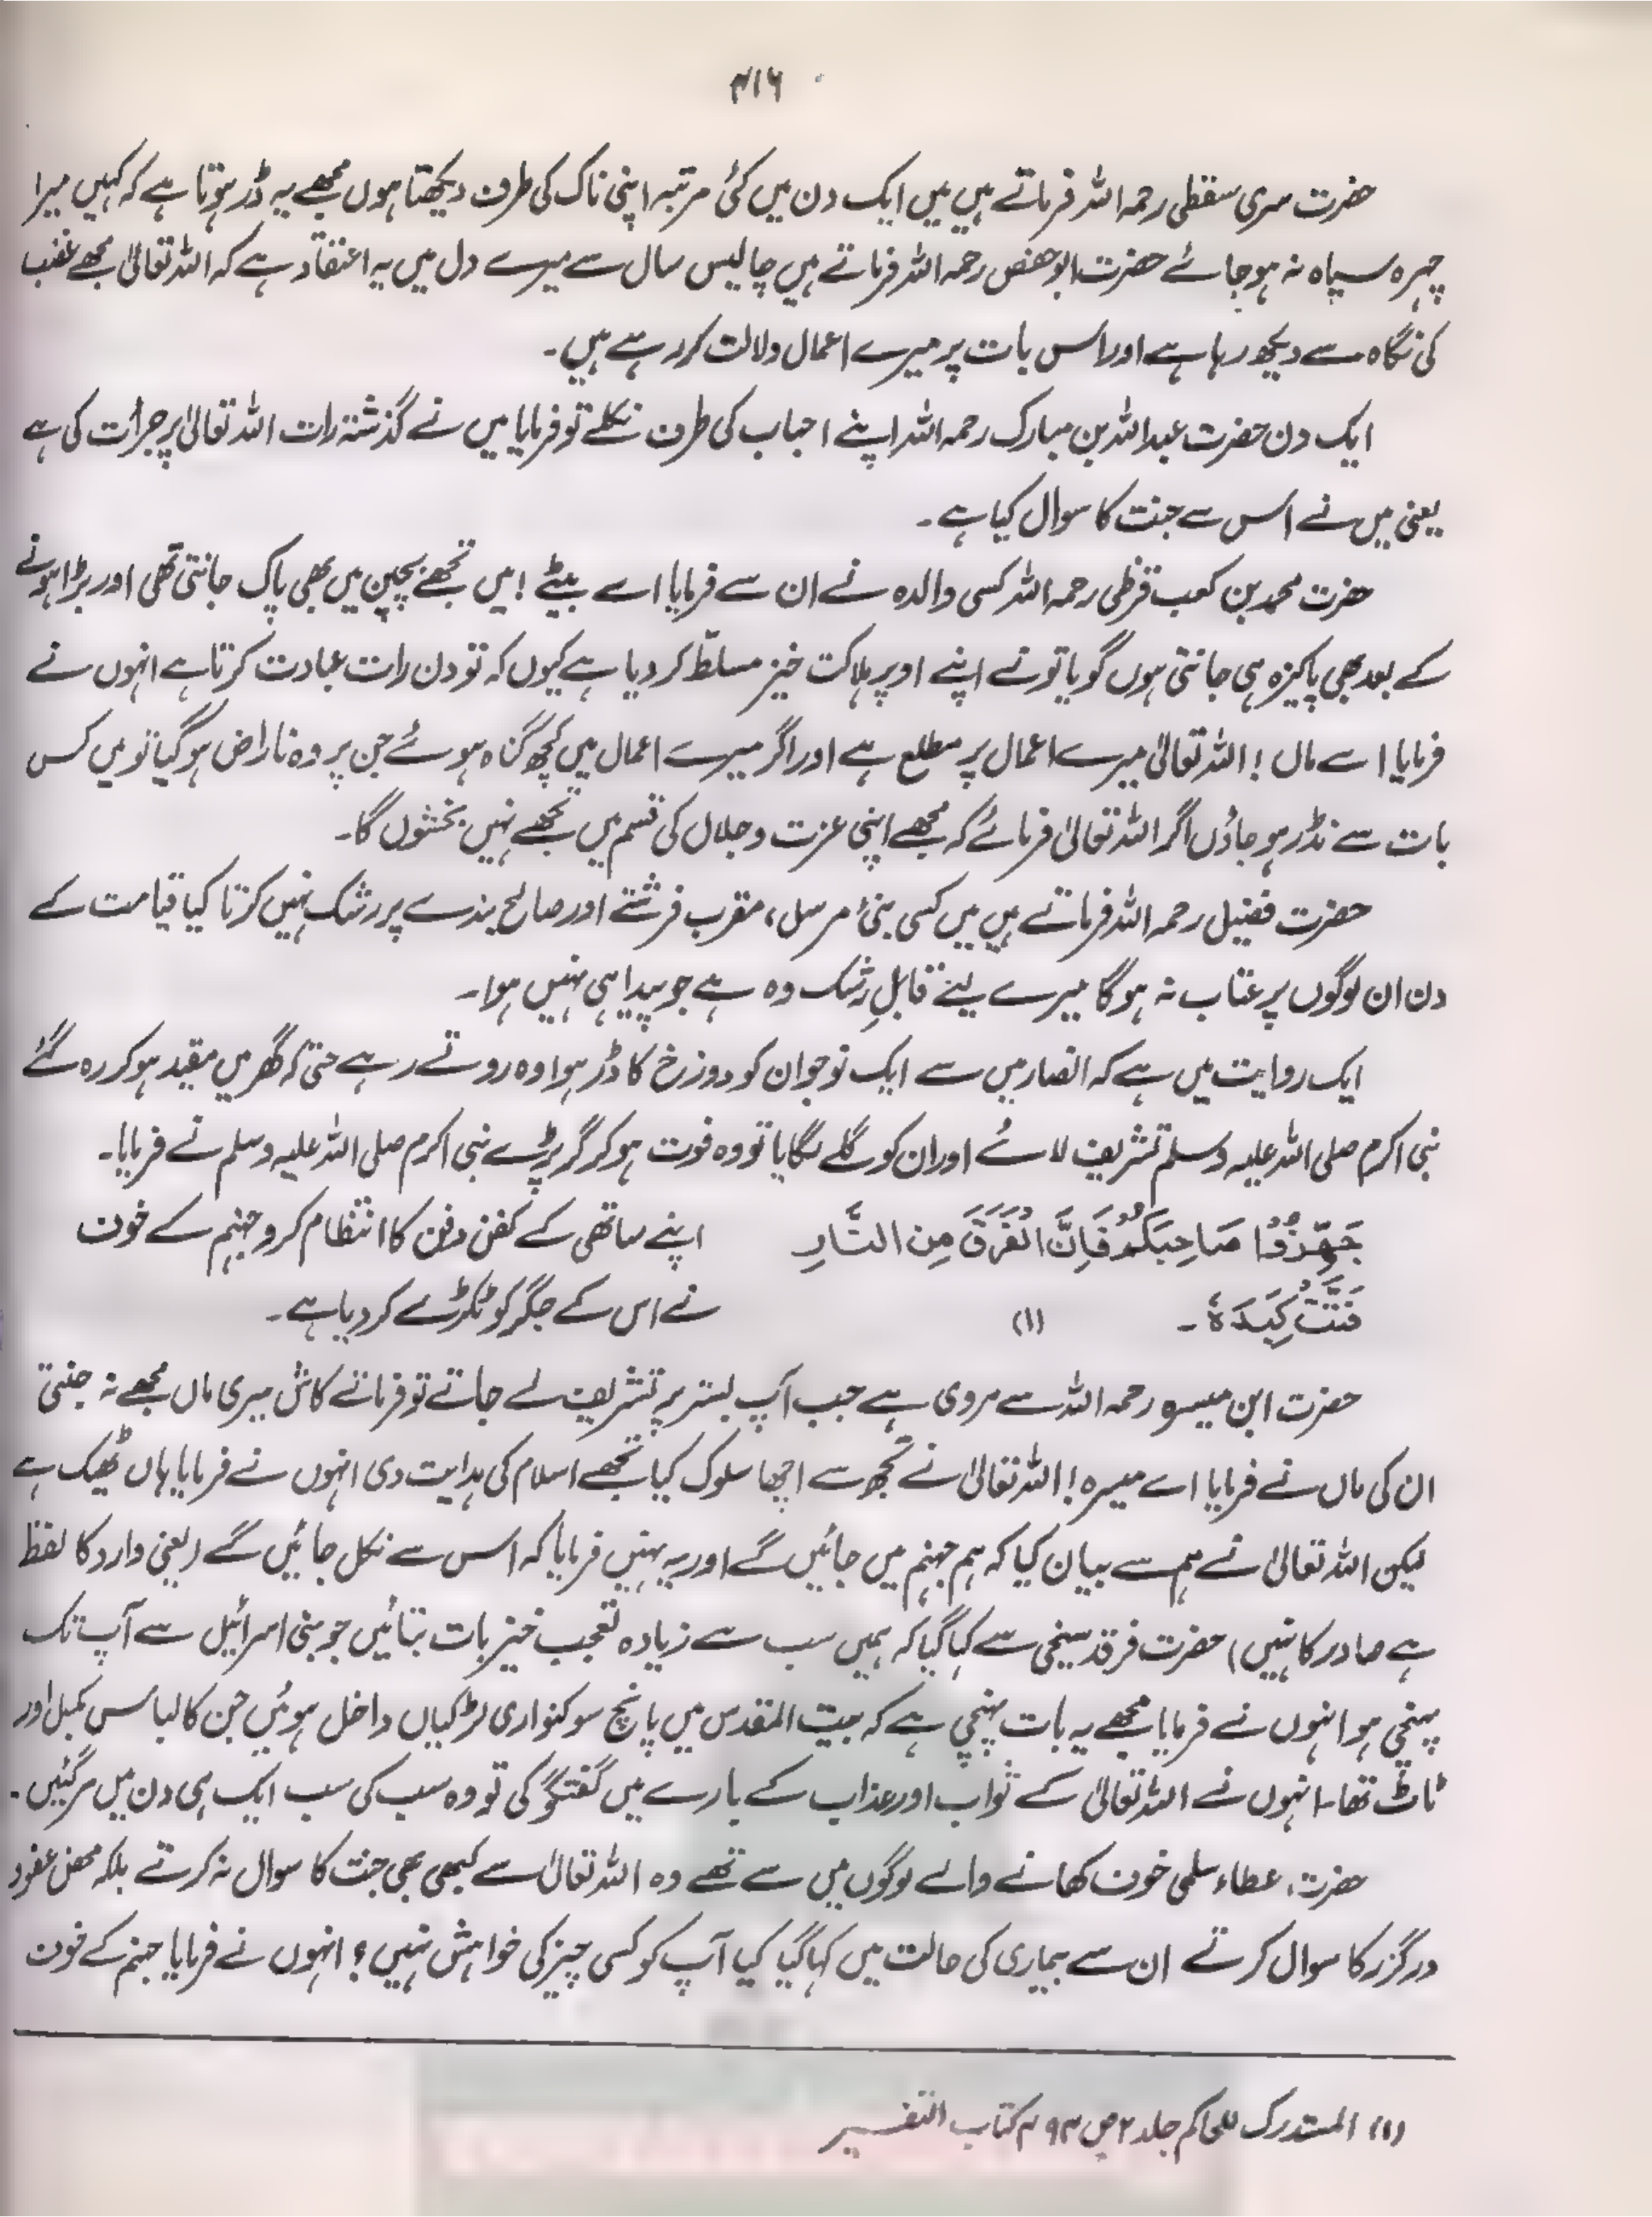 ۴۱۶
حضرت سری سقطی رحمہ اللہ فرماتے ہیں میں ایک دن میں کئی مرتبہ اپنی ناک کی طرف دیکھتا ہوں مجھے یہ ڈر ہوتا ہے کہ کہیں میرا
چہرہ سیاہ نہ ہو جائے حضرت ابوحفص رحمہ اللہ فرماتے ہیں چالیس سال سے میرے دل میں یہ اعتقاد ہے کہ اللہ تعالیٰ مجھے غضب
کی نگاہ سے دیکھ رہا ہے اور اس بات پر میرے اعمال دلالت کر رہے ہیں۔
ایک دن حضرت عبداللہ بن مبارک رحمہ اللہ اپنے احباب کی طرف نکلے تو فرمایا میں نے گذشتہ رات اللہ تعالیٰ پر جرأت کی ہے
یعنی میں نے اس سے جنت کا سوال کیا ہے۔
حضرت محمد بن کعب قرظی رحمہ اللہ کسی والدہ نے ان سے فرمایا اے بیٹے! میں تجھے بچپن میں بھی پاک جانتی تھی اور بڑا ہونے
کے بعد بھی پاکیزہ ہی جانتی ہوں گویا تو نے اپنے اوپر ہلاکت خیز مسلّط کر دیا ہے کیوں کہ تو دن رات عبادت کرتا ہے انہوں نے
فرمایا اے ماں! اللہ تعالیٰ میرے اعمال پر مطلع ہے اور اگر میرے اعمال میں کچھ گناہ ہوئے جن پر وہ ناراض ہو گیا تو میں کس
بات سے نڈر ہو جاؤں اگر اللہ تعالیٰ فرمائے کہ مجھے اپنی عزت و جلال کی قسم میں تجھے نہیں بخشوں گا۔
حضرت فضیل رحمہ اللہ فرماتے ہیں میں کسی نبیٔ مرسل، مقرب فرشتے اور صالح بندے پر رشک نہیں کرتا کیا قیامت کے
دن ان لوگوں پر عتاب نہ ہوگا میرے لیے قابلِ رشک وہ ہے جو پیدا ہی نہیں ہوا۔
ایک روایت میں ہے کہ انصار میں سے ایک نوجوان کو دوزخ کا ڈر ہوا وہ روتے رہے حتیٰ کہ گھر میں مقید ہو کر رہ گئے
نبی اکرم صلی اللہ علیہ وسلم تشریف لائے اور ان کو گلے لگایا تو وہ فوت ہو کر گر پڑے نبی اکرم صلی اللہ علیہ وسلم نے فرمایا۔
جَهِّزُوْا صَاحِبَكُمْ فَإِنَّ الْفَرَقَ مِنَ النَّارِ اپنے ساتھی کے کفن دفن کا انتظام کرو جہنم کے خوف
فَتَّتَ كَبِدَهُ۔ (۱) نے اس کے جگر کو ٹکڑے کر دیا ہے۔
حضرت ابن میسرہ رحمہ اللہ سے مروی ہے جب آپ بستر پر تشریف لے جاتے تو فرماتے کاش میری ماں مجھے نہ جنتی
ان کی ماں نے فرمایا اے میسرہ! اللہ تعالیٰ نے تجھ سے اچھا سلوک کیا تجھے اسلام کی ہدایت دی انہوں نے فرمایا ہاں ٹھیک ہے
لیکن اللہ تعالیٰ نے ہم سے بیان کیا کہ ہم جہنم میں جائیں گے اور یہ نہیں فرمایا کہ اس سے نکل جائیں گے (یعنی وارد کا لفظ
ہے صادر کا نہیں) حضرت فرقد سبخی سے کہا گیا کہ ہمیں سب سے زیادہ تعجب خیز بات بتائیں جو بنی اسرائیل سے آپ تک
پہنچی ہو انہوں نے فرمایا مجھے یہ بات پہنچی ہے کہ بیت المقدس میں پانچ سو کنواری لڑکیاں داخل ہوئیں جن کا لباس کمبل اور
ٹاٹ تھا۔ انہوں نے اللہ تعالیٰ کے ثواب اور عذاب کے بارے میں گفتگو کی تو وہ سب کی سب ایک ہی دن میں مر گئیں۔
حضرت عطاء سلمی خوف کھانے والے لوگوں میں سے تھے وہ اللہ تعالیٰ سے کبھی بھی جنت کا سوال نہ کرتے بلکہ محض عفو و
درگزر کا سوال کرتے ان سے بیماری کی حالت میں کہا گیا کیا آپ کو کسی چیز کی خواہش نہیں؟ انہوں نے فرمایا جہنم کے خوف
(۱) المستدرک للحاکم جلد ۲ ص ۴۹۴ کتاب التفسیر